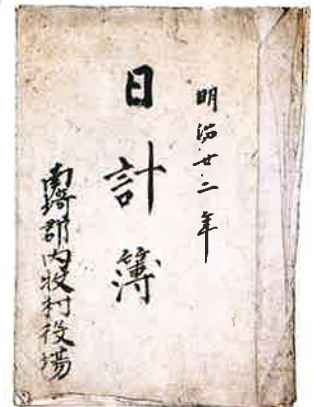 明治廿二年
日計簿
南埼郡内牧村役場